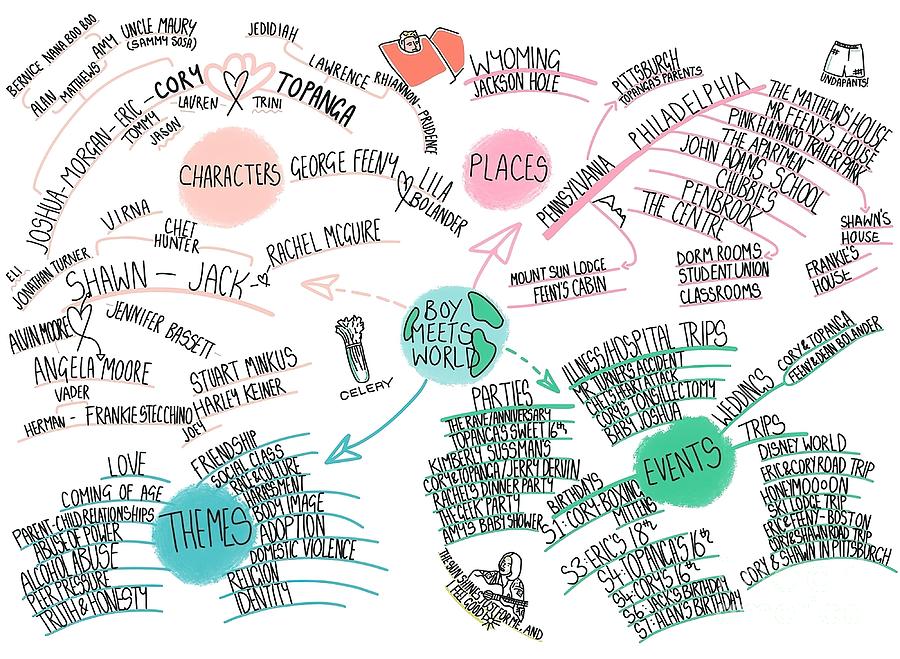 BOY
MEETS
WORLD
CHARACTERS
BERNICE NANA BOO BOO
UNCLE MAURY
(SAMMY SOSA)
AMY
ALAN
MATTHEWS
JEDIDIAH
LAWRENCE
RHIANNON - PRUDENCE
JOSHUA - MORGAN - ERIC - CORY
TOPANGA
LAUREN
TRINI
TOMMY
JASON
GEORGE FEENY
LILA
BOLANDER
VIRNA
CHET
HUNTER
RACHEL MCGUIRE
ELI
JONATHAN TURNER
SHAWN - JACK
ALVIN MOORE
JENNIFER BASSETT
ANGELA MOORE
VADER
HERMAN - FRANKIE STECCHINO
STUART MINKUS
HARLEY KEINER
JOEY
CELERY
PLACES
WYOMING
JACKSON HOLE
PITTSBURGH
TOPANGA'S PARENTS
PENNSYLVANIA
PHILADELPHIA
UNDAPANTS!
THE MATTHEWS' HOUSE
MR FEENY'S HOUSE
PINK FLAMINGO TRAILER PARK
THE APARTMEN
JOHN ADAMS SCHOOL
CHUBBIE'S
PENBROOK
THE CENTRE
SHAWN'S
HOUSE
FRANKIE'S
HOUSE
DORM ROOMS
STUDENT UNION
CLASSROOMS
MOUNT SUN LODGE
FEENY'S CABIN
THEMES
LOVE
COMING OF AGE
PARENT-CHILD RELATIONSHIPS
ABUSE OF POWER
ALCOHOL ABUSE
PER PRESSURE
TRUTH & HONESTY
FRIENDSHIP
SOCIAL CLASS
RACE & CULTURE
HARASSMENT
BODY IMAGE
ADOPTION
DOMESTIC VIOLENCE
RELIGION
IDENTITY
EVENTS
PARTIES
THE RAVE/ANNIVERSARY
TOPANGA'S SWEET 16th
KIMBERLY SUSSMAN'S
CORY & TOPANGA / JERRY DERVIN
RACHEL'S DINNER PARTY
THE GEEK PARTY
AMY'S BABY SHOWER
THE SUN SHINES JUST FOR ME, AND
I FEEL GOOD
ILLNESS/HOSPITAL TRIPS
MR TURNER'S ACCIDENT
CHET'S HEART ATTACK
CORY'S TONSILLECTOMY
BABY JOSHUA
WEDDINGS
CORY & TOPANGA
FEENY & DEAN BOLANDER
TRIPS
DISNEY WORLD
ERIC & CORY ROAD TRIP
HONEYMOOOON
SKI LODGE TRIP
ERIC & FEENY - BOSTON
CORY & SHAWN IN PITTSBURGH
BIRTHDAYS
S1: CORY - BOXING
MITTENS
S3 - ERIC'S 18th
S4 - TOPANGA'S 16th
S4 - CORY'S 16th
S6: JACK'S BIRTHDAY
S7: ALAN'S BIRTHDAY